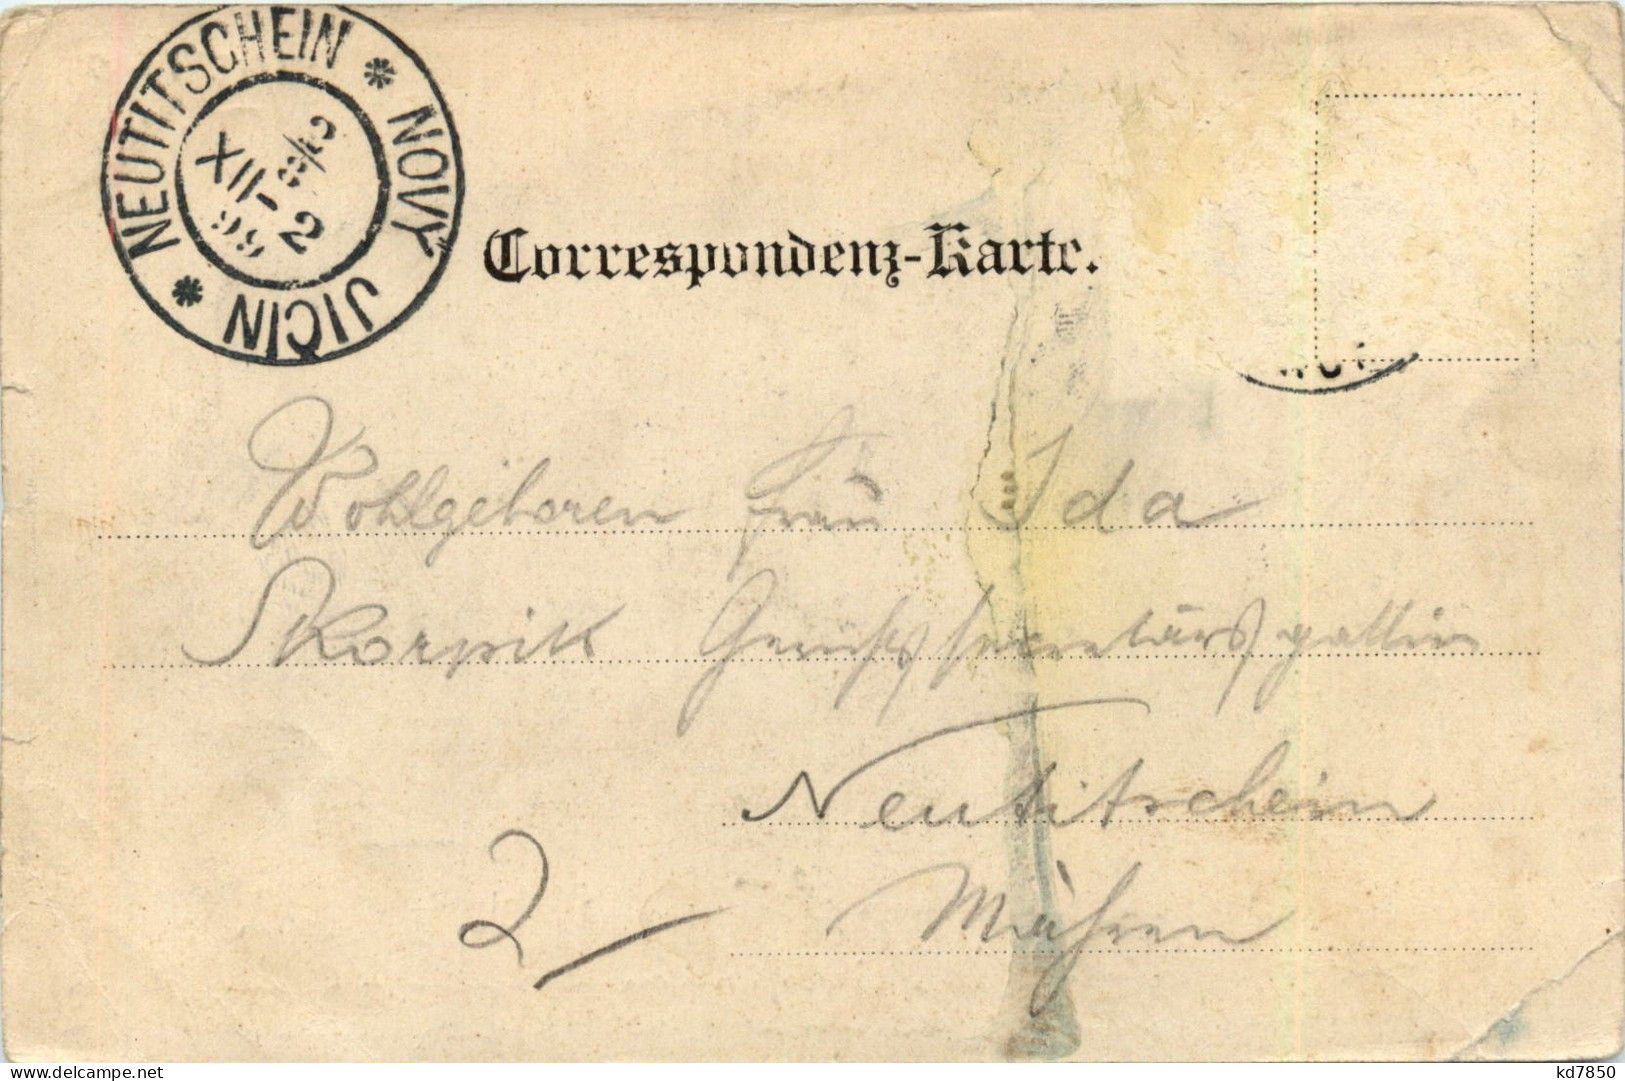 NEUTITSCHEIN * NOVY JICIN *
2/8
XII
99
2
Correspondenz-Karte.
Wohlgeboren Frau Ida
Skorpik Gerichtssecretärsgattin
Neutitschein
2
Mähren
www.delcampe.net
kd7850